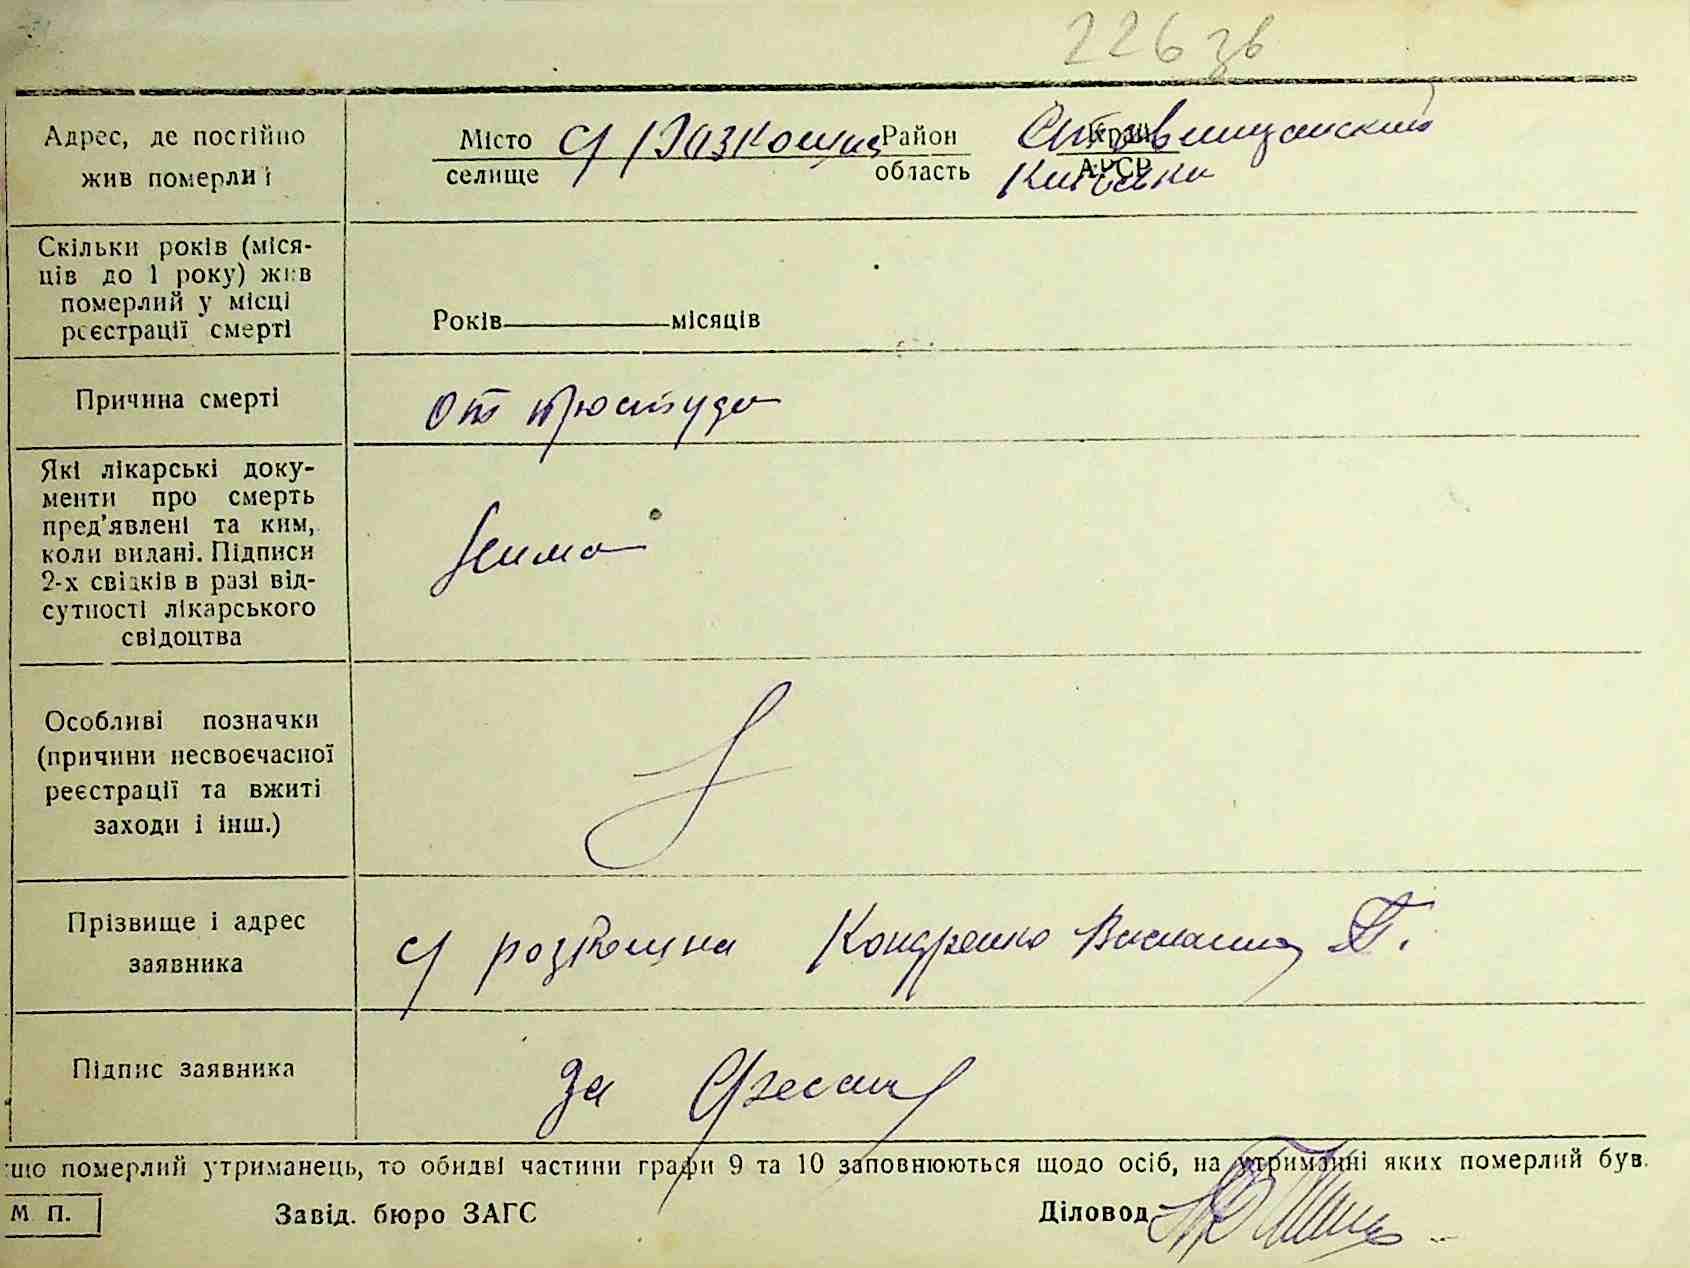 226 зв
Адрес, де постійно
жив померлиі
Місто с Разкошна Район Ставищанский Край
селище область Киівська АРСР
Скільки років (міся-
ців до 1 року) жив
померлий у місці
реєстрації смерті
Років місяців
Причина смерті
от простуди
Які лікарські доку-
менти про смерть
пред'явлені та ким,
коли видані. Підписи
2-х свідків в разі від-
сутності лікарського
свідоцтва
Нима
Особливі позначки
(причини несвоєчасної
реєстрації та вжиті
заходи і інш.)
Прізвище і адрес
заявника
с розкошна Кондренко П.
Підпис заявника
За
що померлий утриманець, то обидві частини графи 9 та 10 заповнюються щодо осіб, на утриманні яких померлий був.
М П. Завід. бюро ЗАГС Діловод